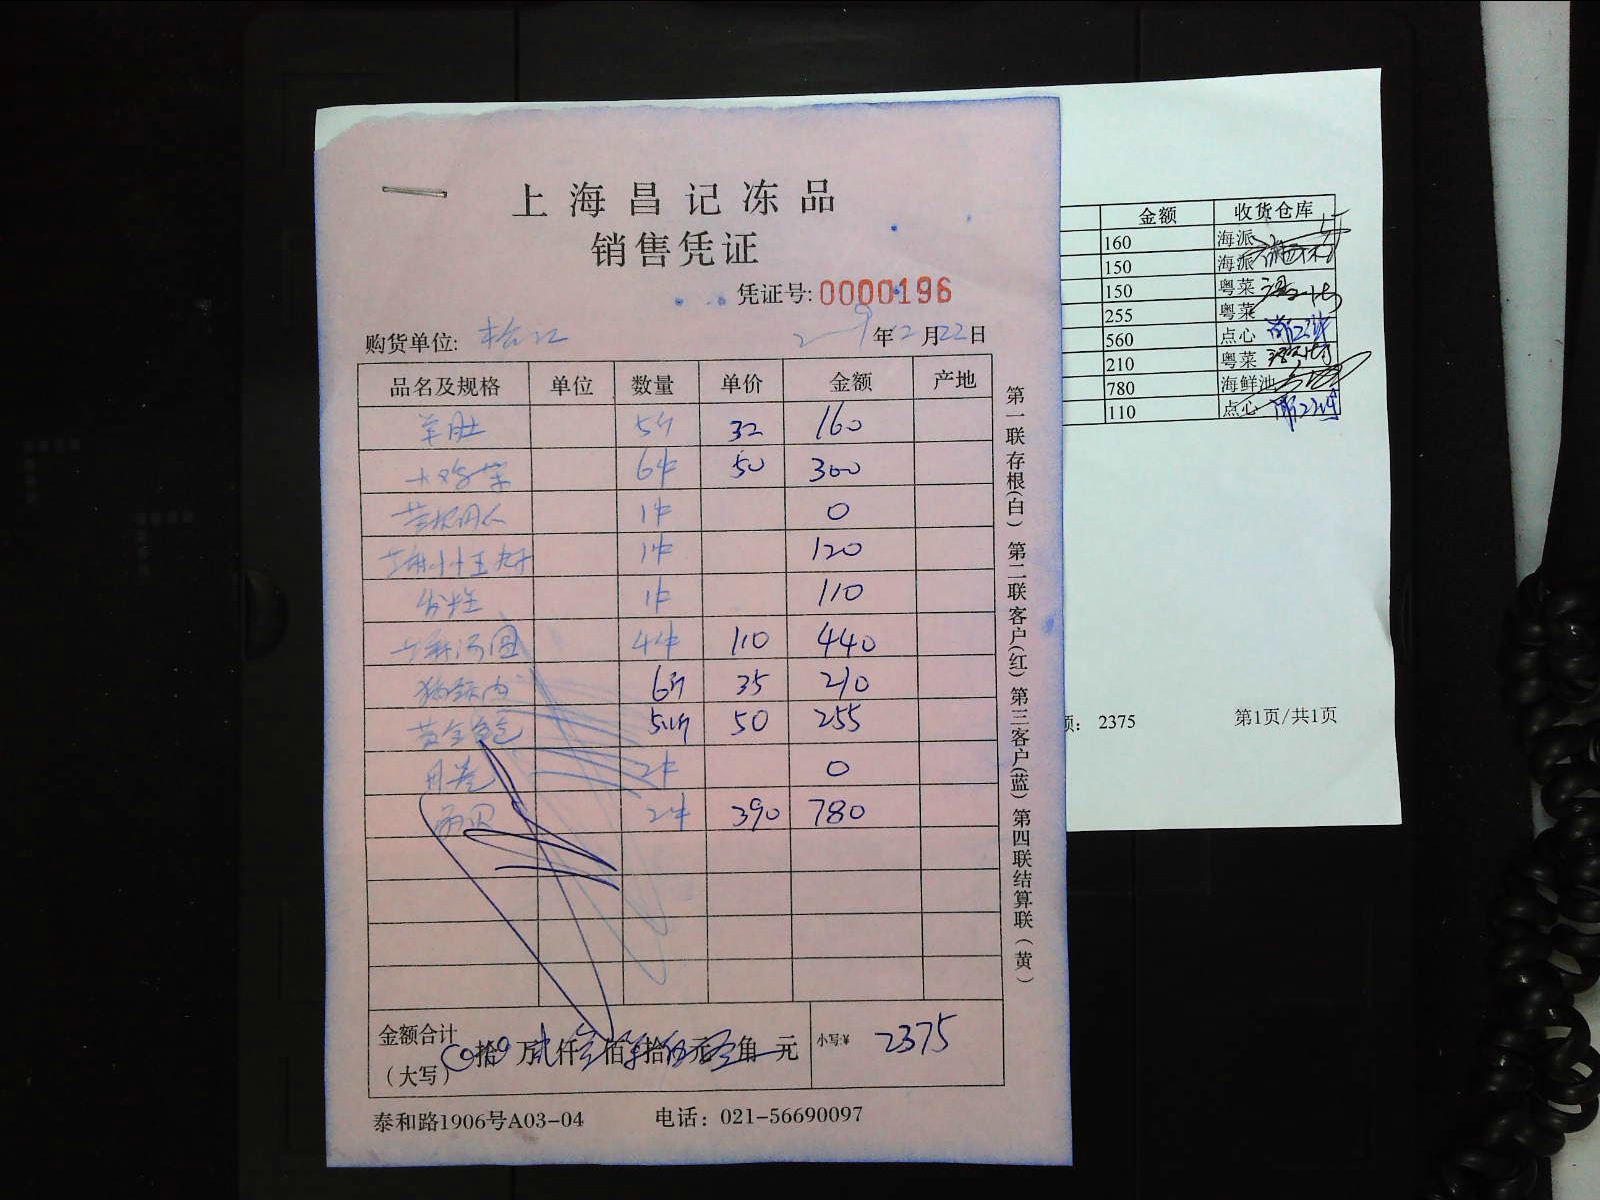 上海昌记冻品
销售凭证
凭证号: 0000196
购货单位: 松江 年12月22日
品名及规格 单位 数量 单价 金额 产地
羊肚 5斤 32 160
6件 50 300
1件 0
1件 120
1件 110
上海汤圆 4件 110 440
猪颈肉 6斤 35 210
黄金鲍 50 255
2件 0
2件 390 780
金额合计
(大写)
拾 万贰仟叁佰柒拾伍元 角 元 小写:¥ 2375
泰和路1906号A03-04 电话: 021-56690097
第一联存根(白) 第二联客户(红) 第三客户(蓝) 第四联结算联(黄)
金额 收货仓库
160 海派
150 海派
150 粤菜
255 粤菜
560 点心
210 粤菜
780 海鲜池
110 点心
2375 第1页/共1页